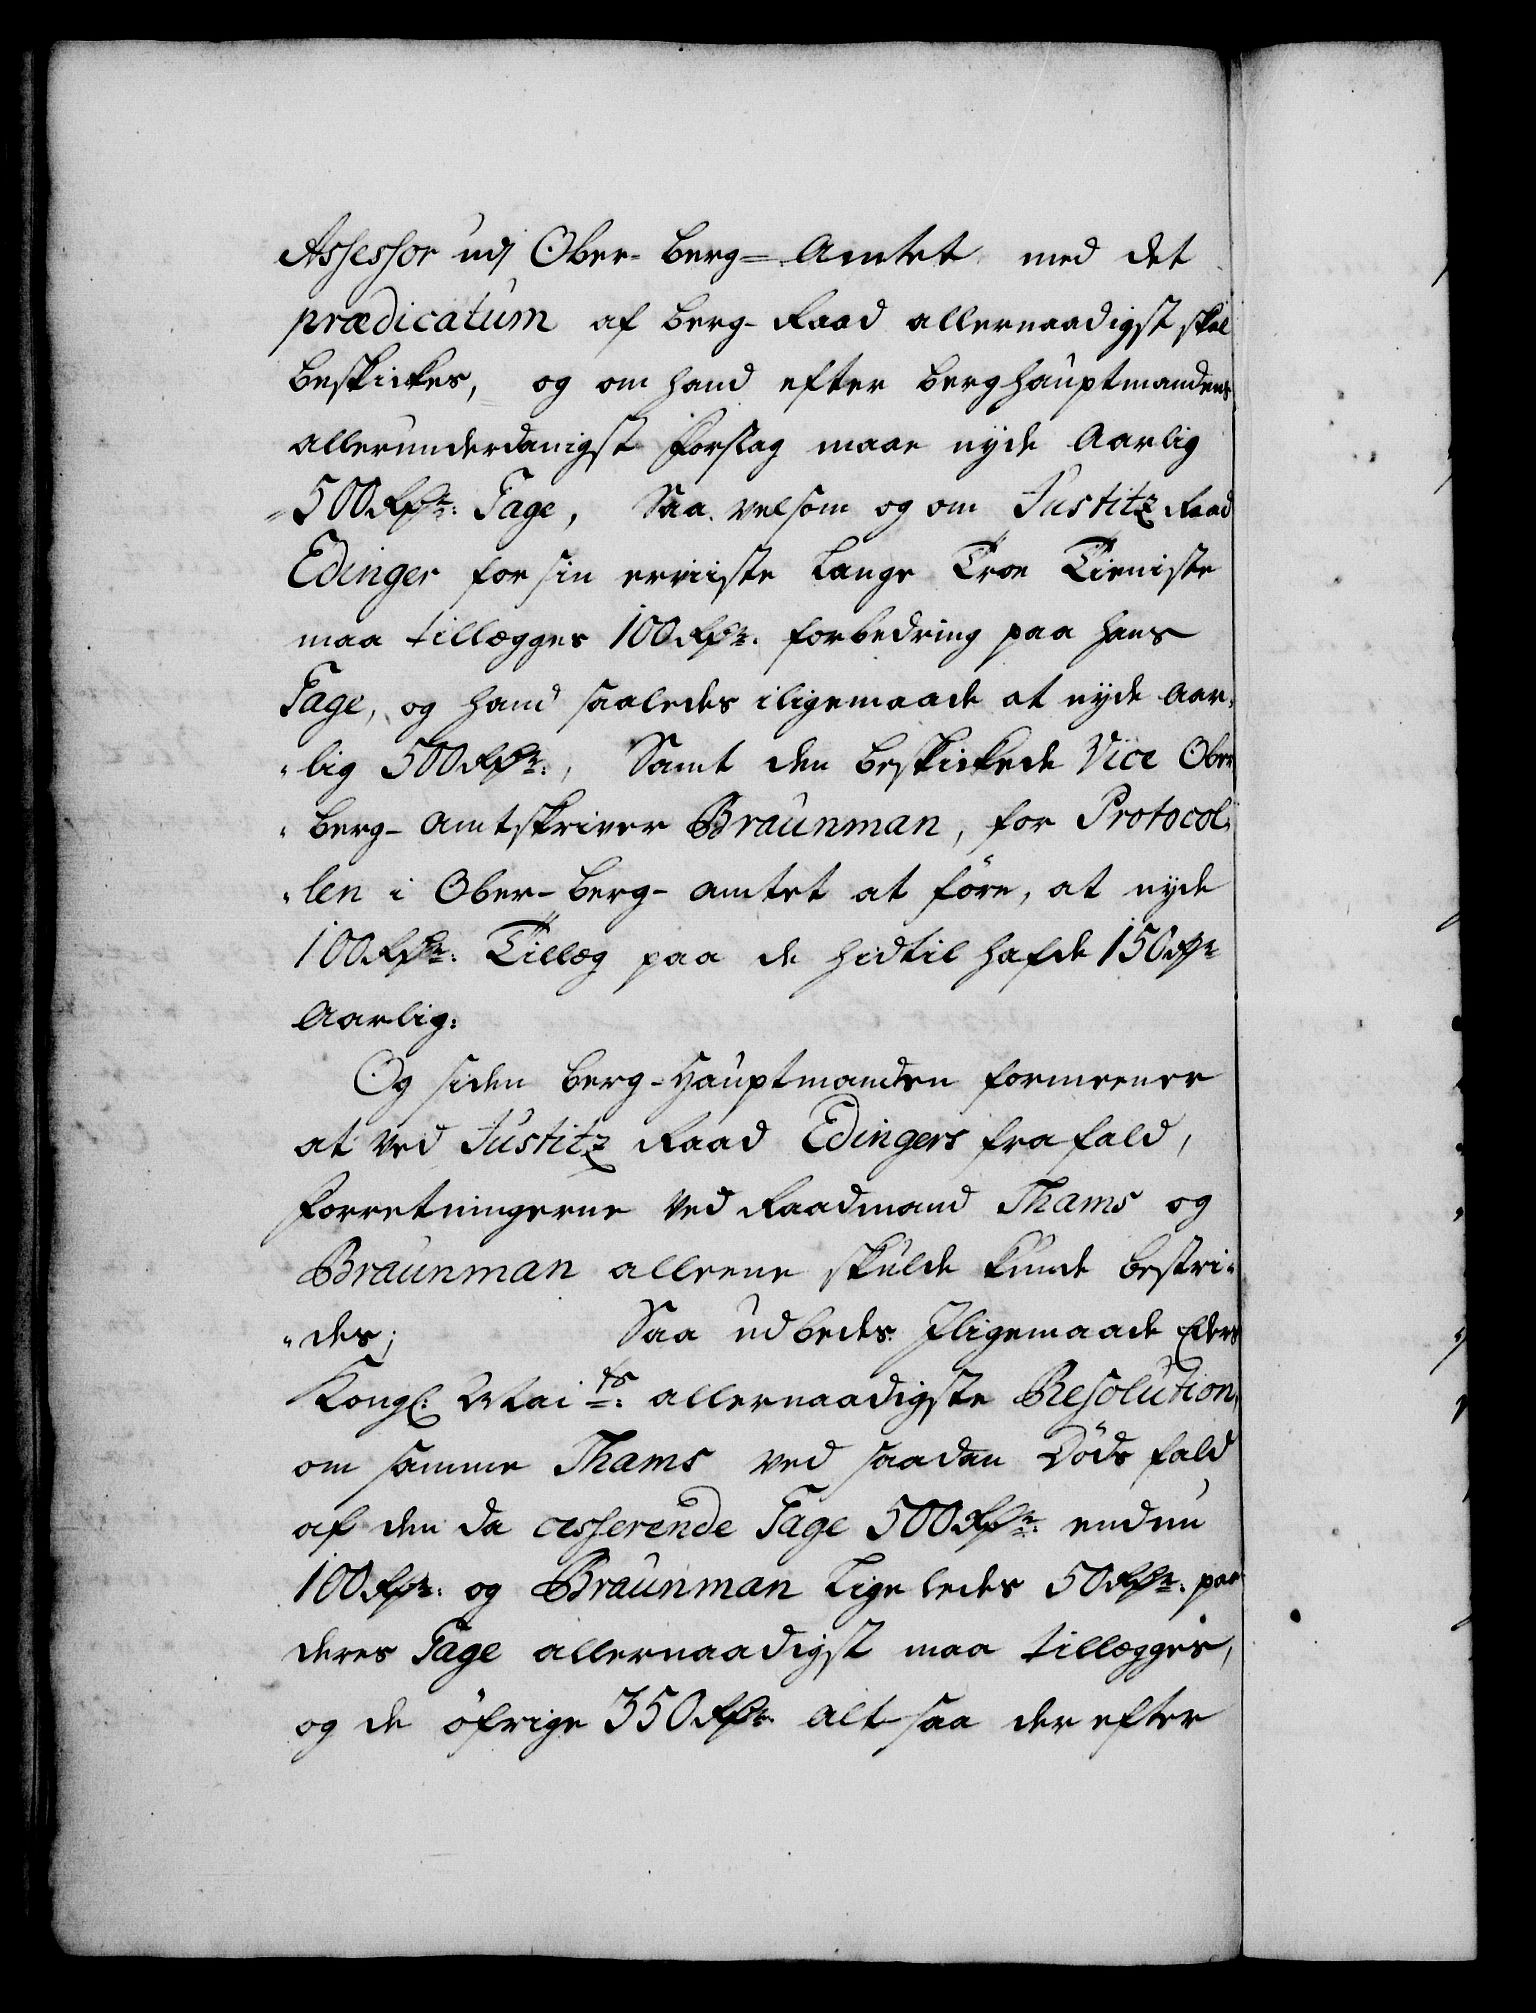 Assessor udj Ober-Berg-Amtet med det
prædicatum af Berg-Raad allernaadigst skal
beskikkes, og om hand efter Berghauptmandens
allerunderdanigst forslag maae nyde Aarlig
500 Rdr: Gage, Saa velsom og om Justitz Raad
Edinger for sin erviiste lange Troe Tieniste
maa tillægges 100 Rdr. forbedring paa hans
Gage, og hand saaledes iligemaade at nyde Aar„
„lig 500 Rdr:, Samt den beskikkede Vice Ober
„Berg-Amtskriver Braunman, for Protocol„
„len i Ober-Berg-Amtet at före, at nyde
100 Rdr: Tillæg paa de hidtil hafde 150 Rdr
Aarlig:
Og siden Berg-Hauptmanden formeener
at ved Justitz Raad Edingers frafald,
forretningerne ved Raadmand Thams og
Braunman alleene skulde kunde bestri„
„des; Saa udbedes Iligemaade Eders
Kongl: Maits: allernaadigste Resolution,
om samme Thams ved saadan Döds fald
af den da cesserende Gage 500 Rdr: endnu
100 Rdr: og Braunman Ligeledes 50 Rdr: paa
deres Gage allernaadigst maa tillægges,
og de öfrige 350 Rdr. altsaa der efter